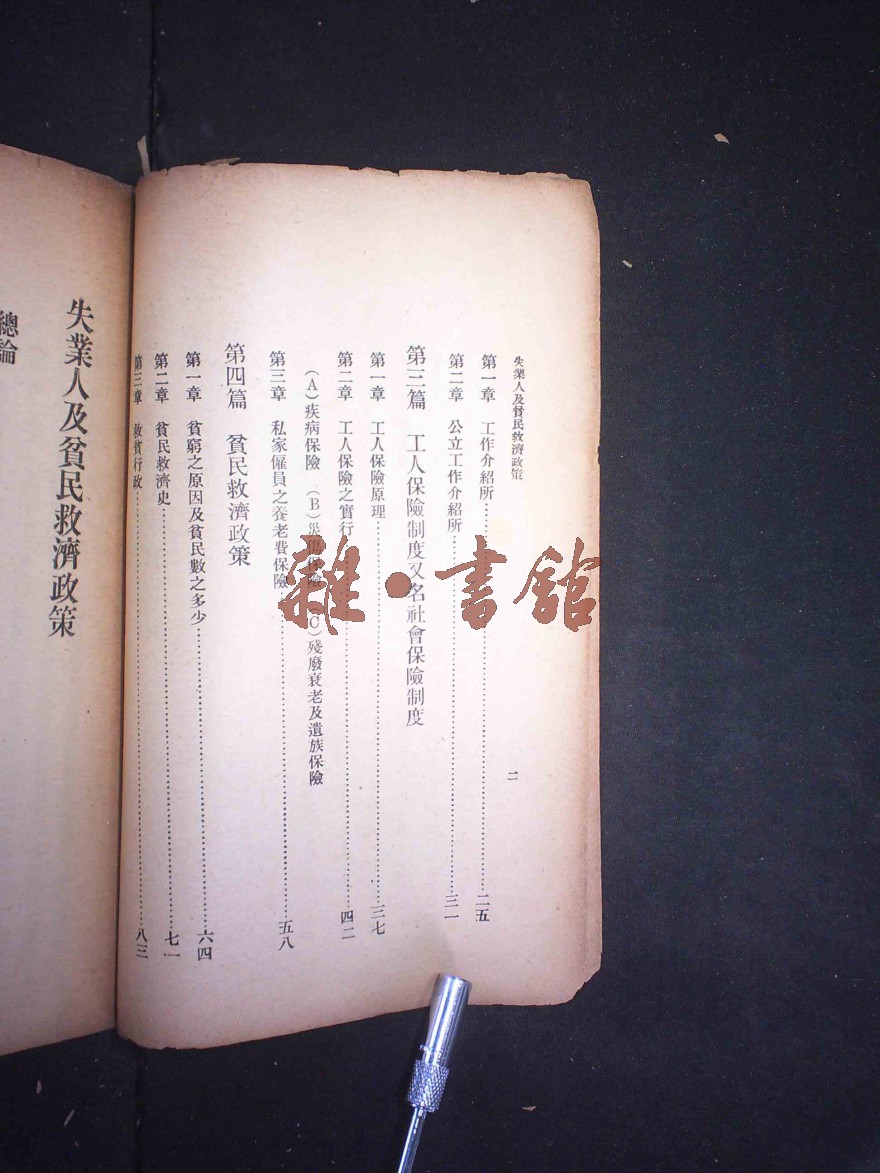 失業人及貧民救濟政策
二
第一章 工作介紹所 二五
第二章 公立工作介紹所 三一
第三篇 工人保險制度又名社會保險制度
第一章 工人保險原理 三七
第二章 工人保險之實行 四二
(A)疾病保險 (B)災傷保險 (C)殘廢衰老及遺族保險
第三章 私家僱員之養老費保險 五八
第四篇 貧民救濟政策
第一章 貧窮之原因及貧民數之多少 六四
第二章 貧民救濟史 七一
第三章 救貧行政 八三
失業人及貧民救濟政策
總論
雜·書館